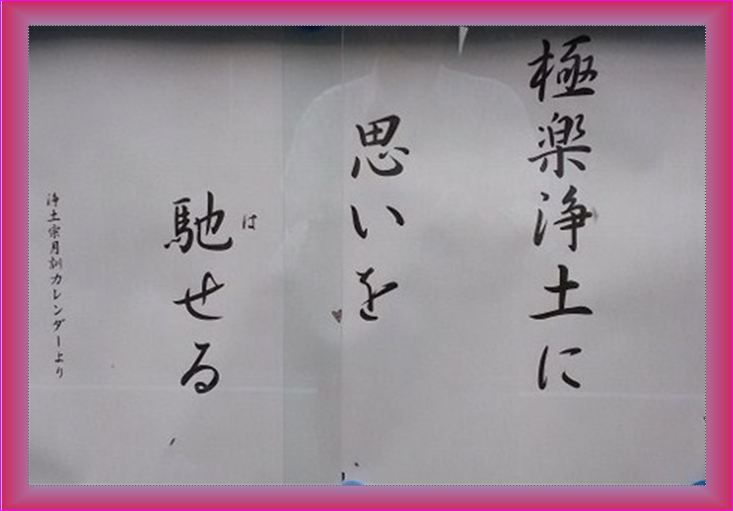 極楽浄土に
思いを
馳せる
は
浄土宗月訓カレンダーより